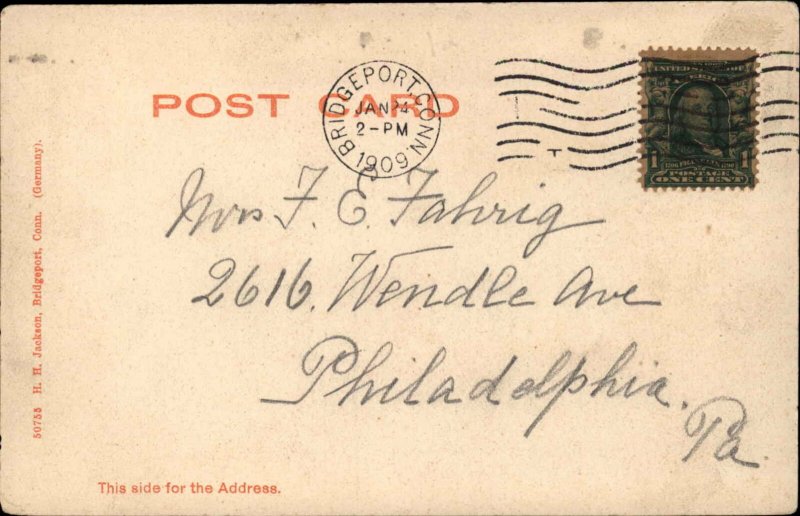 POST CARD
BRIDGEPORT, CONN.
JAN 24
2-PM
1909
1
POSTAGE
1
ONE CENT
Mrs F. E. Fahrig
2616. Wendle Ave
Philadelphia.
Pa
50755 H. H. Jackson, Bridgeport, Conn. (Germany).
This side for the Address.